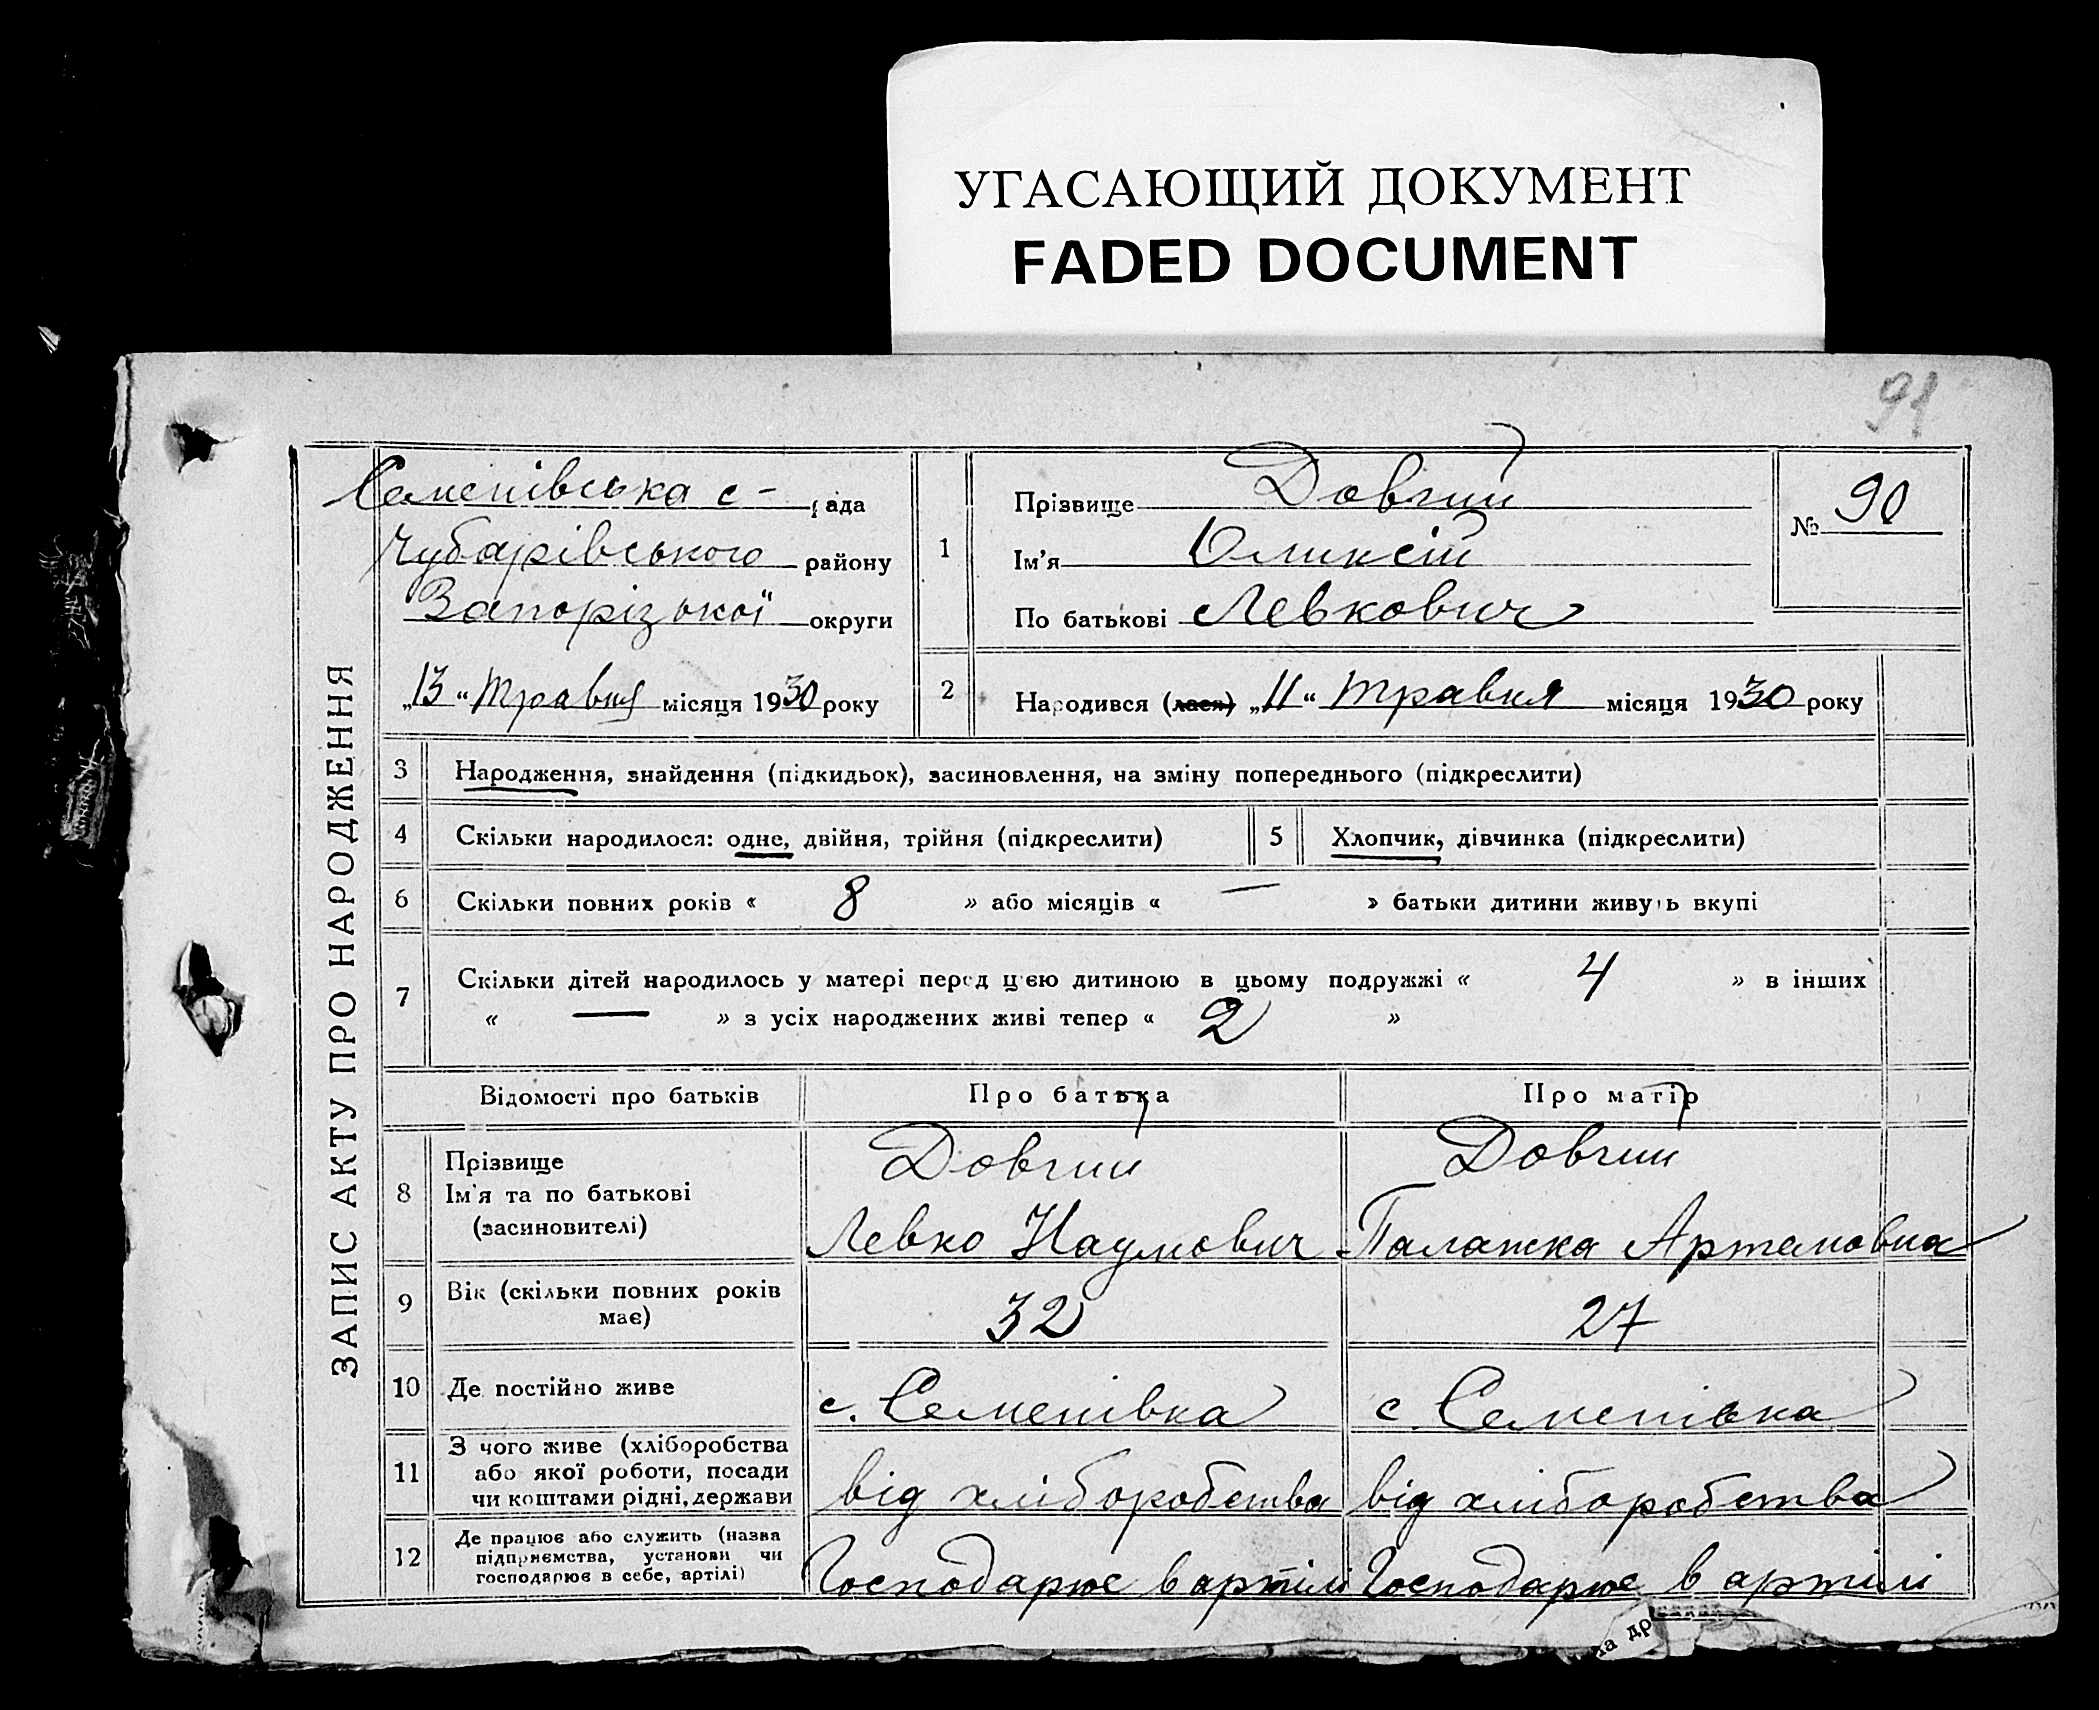 УГАСАЮЩИЙ ДОКУМЕНТ
FADED DOCUMENT
91
ЗАПИС АКТУ ПРО НАРОДЖЕННЯ
Семенівська с- рада
Чубарівського району
Запорізької округи
„13“ травня місяця 1930 року
1
Прізвище Довгий
Ім'я Оликсій
По батькові Левкович
№ 90
2 Народився (лася) „11“ травня місяця 1930 року
3 Народження, знайдення (підкидьок), засиновлення, на зміну попереднього (підкреслити)
4 Скільки народилося: одне, двійня, трійня (підкреслити) 5 Хлопчик, дівчинка (підкреслити)
6 Скільки повних років « 8 » або місяців « — » батьки дитини живуть вкупі
7 Скільки дітей народилось у матері перед цією дитиною в цьому подружжі « 4 » в інших
« — » з усіх народжених живі тепер « 2 »
Відомості про батьків Про батька Про матір
8 Прізвище Довгий Довгий
Ім'я та по батькові Левко Наумович Палажка Артемовна
(засиновителі)
9 Вік (скільки повних років має) 32 27
10 Де постійно живе с. Семенівка с. Семенівка
11 З чого живе (хліборобства
або якої роботи, посади
чи коштами рідні, держави від хліборобства від хліборобства
12 Де працює або служить (назва
підприємства, установи чи
господарює в себе, артілі) Господарює в артілі Господарює в артілі
на др